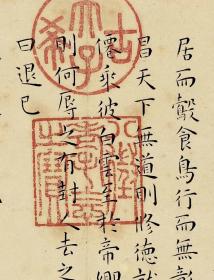 居而鷇食鳥行而無彰
昌天下無道則修德就
僊乘彼白雲至於帝鄉
則何辱之有封人去之
曰退已
古希天子